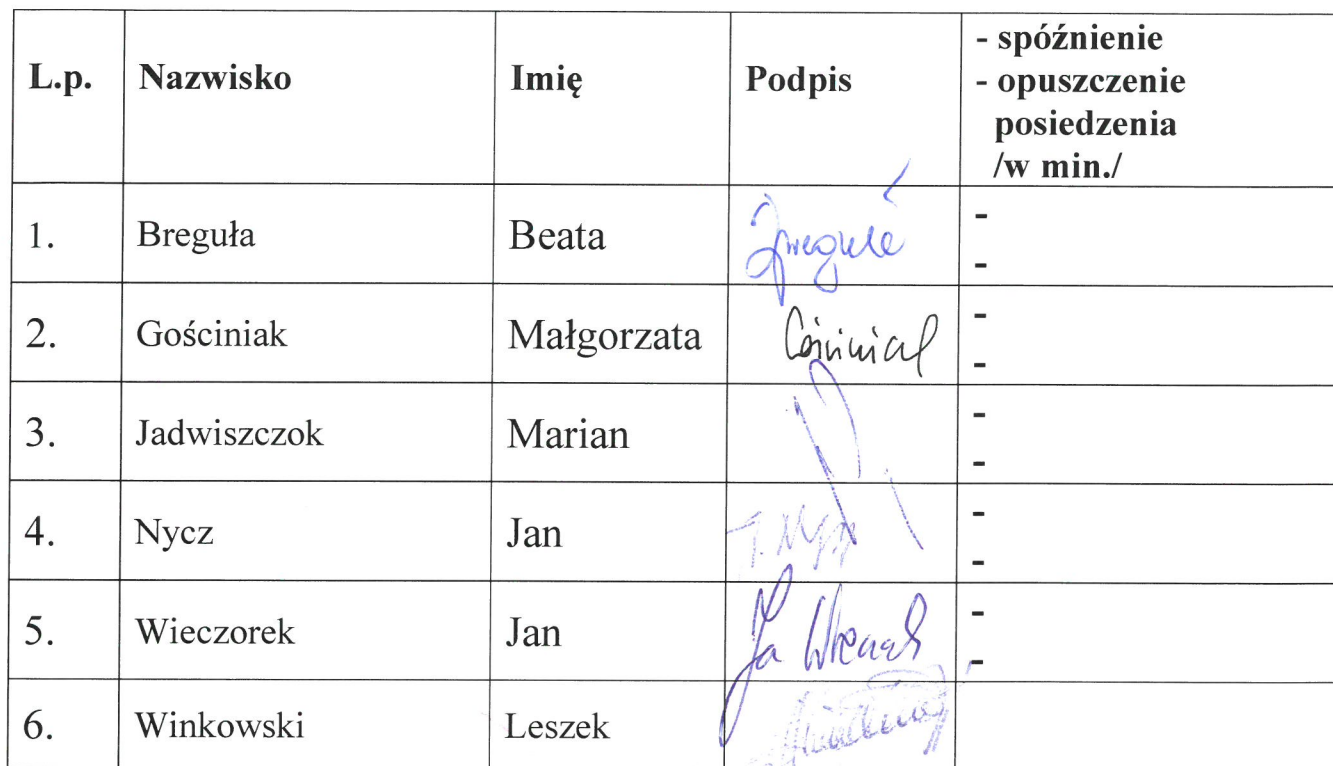 L.p. Nazwisko Imię Podpis - spóźnienie
- opuszczenie
posiedzenia
/w min./
1. Breguła Beata -
-
2. Gościniak Małgorzata -
-
3. Jadwiszczok Marian -
-
4. Nycz Jan -
-
5. Wieczorek Jan -
-
6. Winkowski Leszek